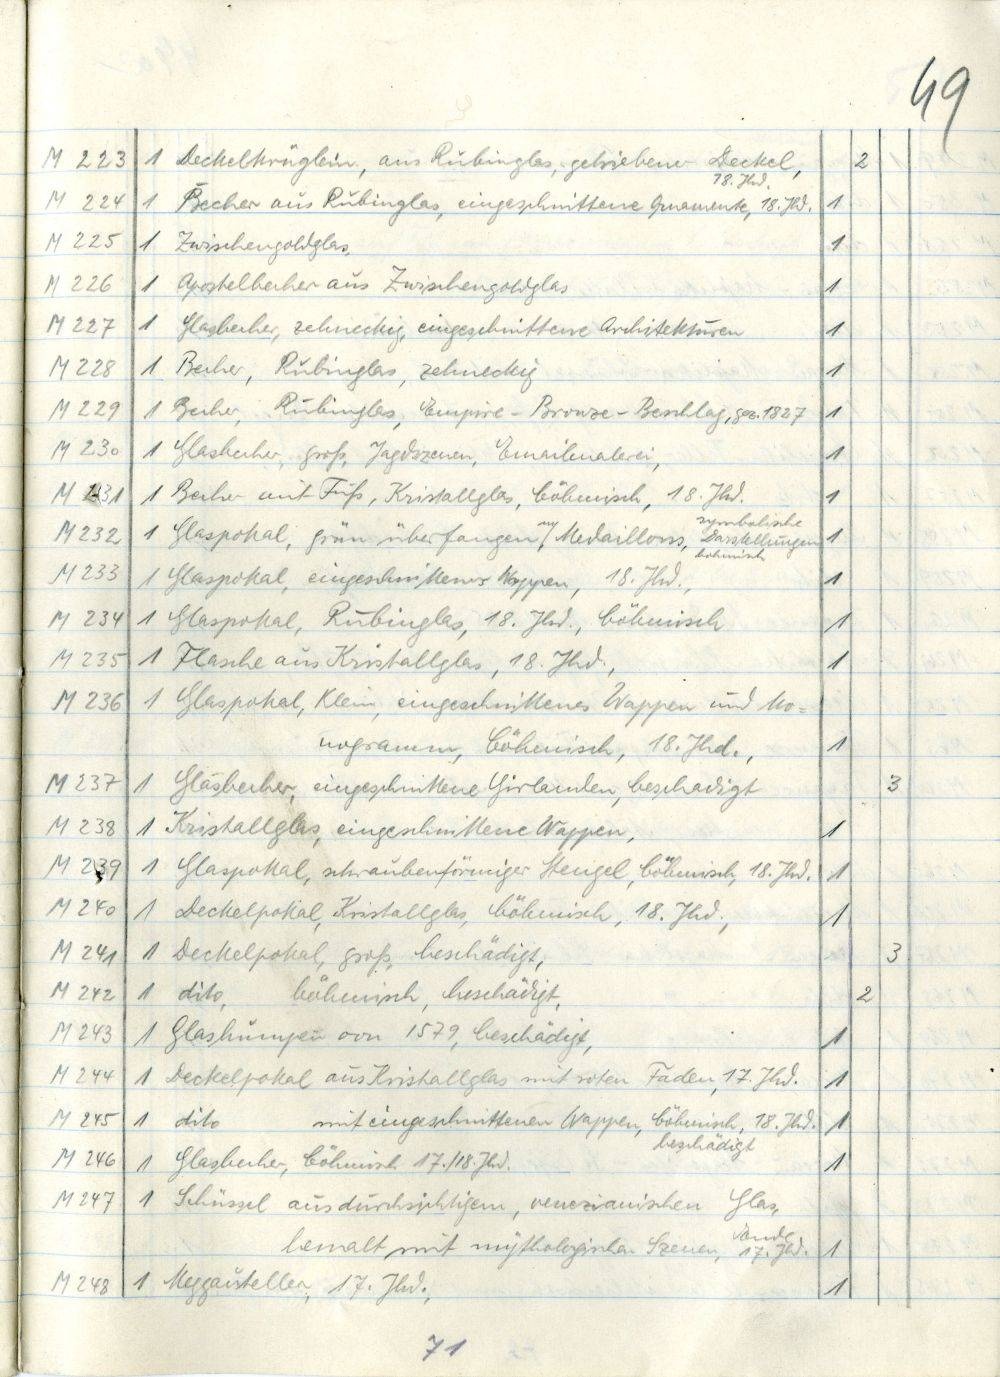 49
M 223 1 Deckelkrüglein, aus Rubinglas, getriebener Deckel, 2
18. Jhd.
M 224 1 Becher aus Rubinglas, eingeschnittene Ornamente, 18. Jhd. 1
M 225 1 Zwischengoldglas, 1
M 226 1 Apostelbecher aus Zwischengoldglas 1
M 227 1 Glasbecher, zehneckig, eingeschnittene Architekturen 1
M 228 1 Becher, Rubinglas, zehneckig 1
M 229 1 Becher, Rubinglas, Empire-Bronze-Beschlag, gez. 1827 1
M 230 1 Glasbecher, groß, Jagdszenen, Emailmalerei, 1
M 231 1 Becher mit Fuß, Kristallglas, böhmisch, 18. Jhd. 1
symbolische
M 232 1 Glaspokal, grün überfangen, Medaillons, Darstellungen 1
böhmisch
M 233 1 Glaspokal, eingeschnittenes Wappen, 18. Jhd., 1
M 234 1 Glaspokal, Rubinglas, 18. Jhd., böhmisch 1
M 235 1 Flasche aus Kristallglas, 18. Jhd., 1
M 236 1 Glaspokal, klein, eingeschnittenes Wappen und Mo=
nogramm, böhmisch, 18. Jhd., 1
M 237 1 Glasbecher, eingeschnittene Girlanden, beschädigt 3
M 238 1 Kristallglas, eingeschnittene Wappen, 1
M 239 1 Glaspokal, schraubenförmiger Stengel, böhmisch, 18. Jhd. 1
M 240 1 Deckelpokal, Kristallglas, böhmisch, 18. Jhd., 1
M 241 1 Deckelpokal, groß, beschädigt, 3
M 242 1 dito, böhmisch, beschädigt, 2
M 243 1 Glashumpen von 1579, beschädigt, 1
M 244 1 Deckelpokal aus Kristallglas mit roten Faden, 17. Jhd. 1
M 245 1 dito mit eingeschnittenen Wappen, böhmisch, 18. Jhd. 1
beschädigt
M 246 1 Glasbecher, böhmisch 17./18. Jhd. 1
M 247 1 Schüssel aus durchsichtigem, venezianischen Glas,
bemalt mit mythologischen Szenen, Ende 17. Jhd. 1
M 248 1 Meggauteller, 17. Jhd., 1
71